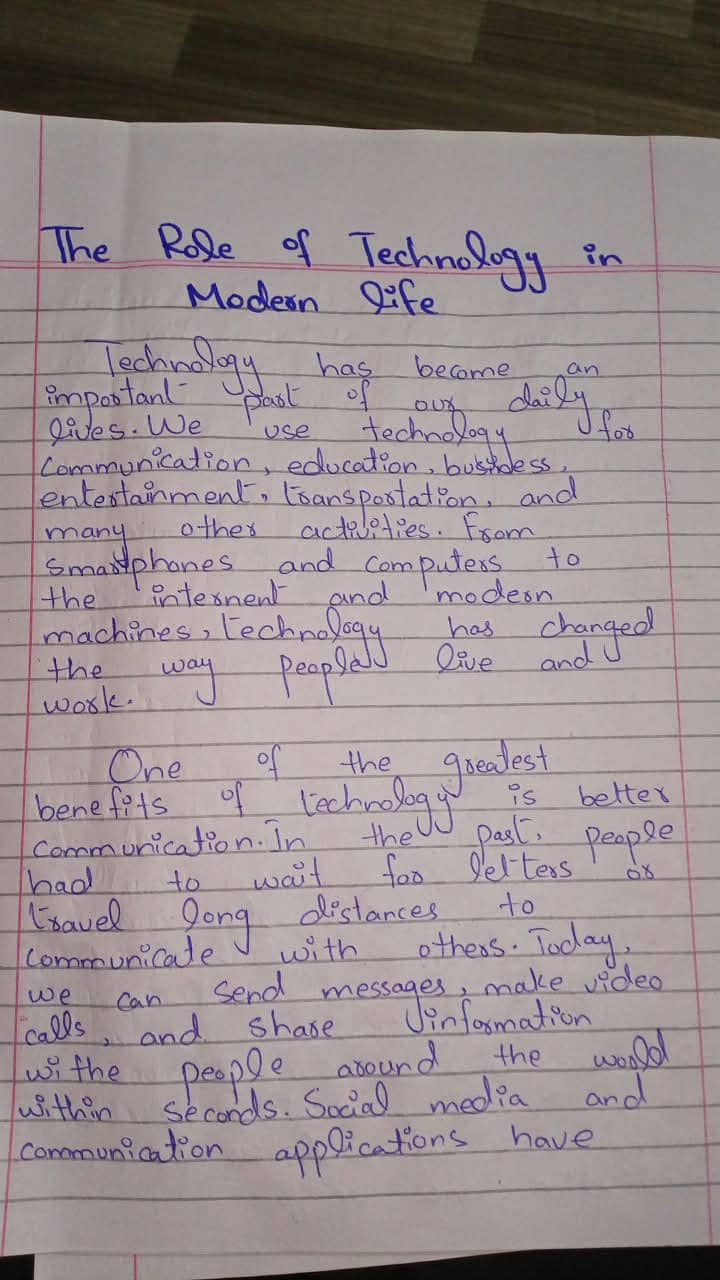 The Role of Technology in
Modern life
Technology has become an
important part of our daily
lives. We use technology for
communication, education, business,
entertainment, transportation, and
many other activities. From
smartphones and computers to
the internent and modern
machines, technology has changed
the way people live and
work.
One of the greatest
benefits of technology is better
communication. In the past, people
had to wait for letters or
travel long distances to
communicate with others. Today,
we can send messages, make video
calls, and share information
withe people around the world
within seconds. Social media and
communication applications have